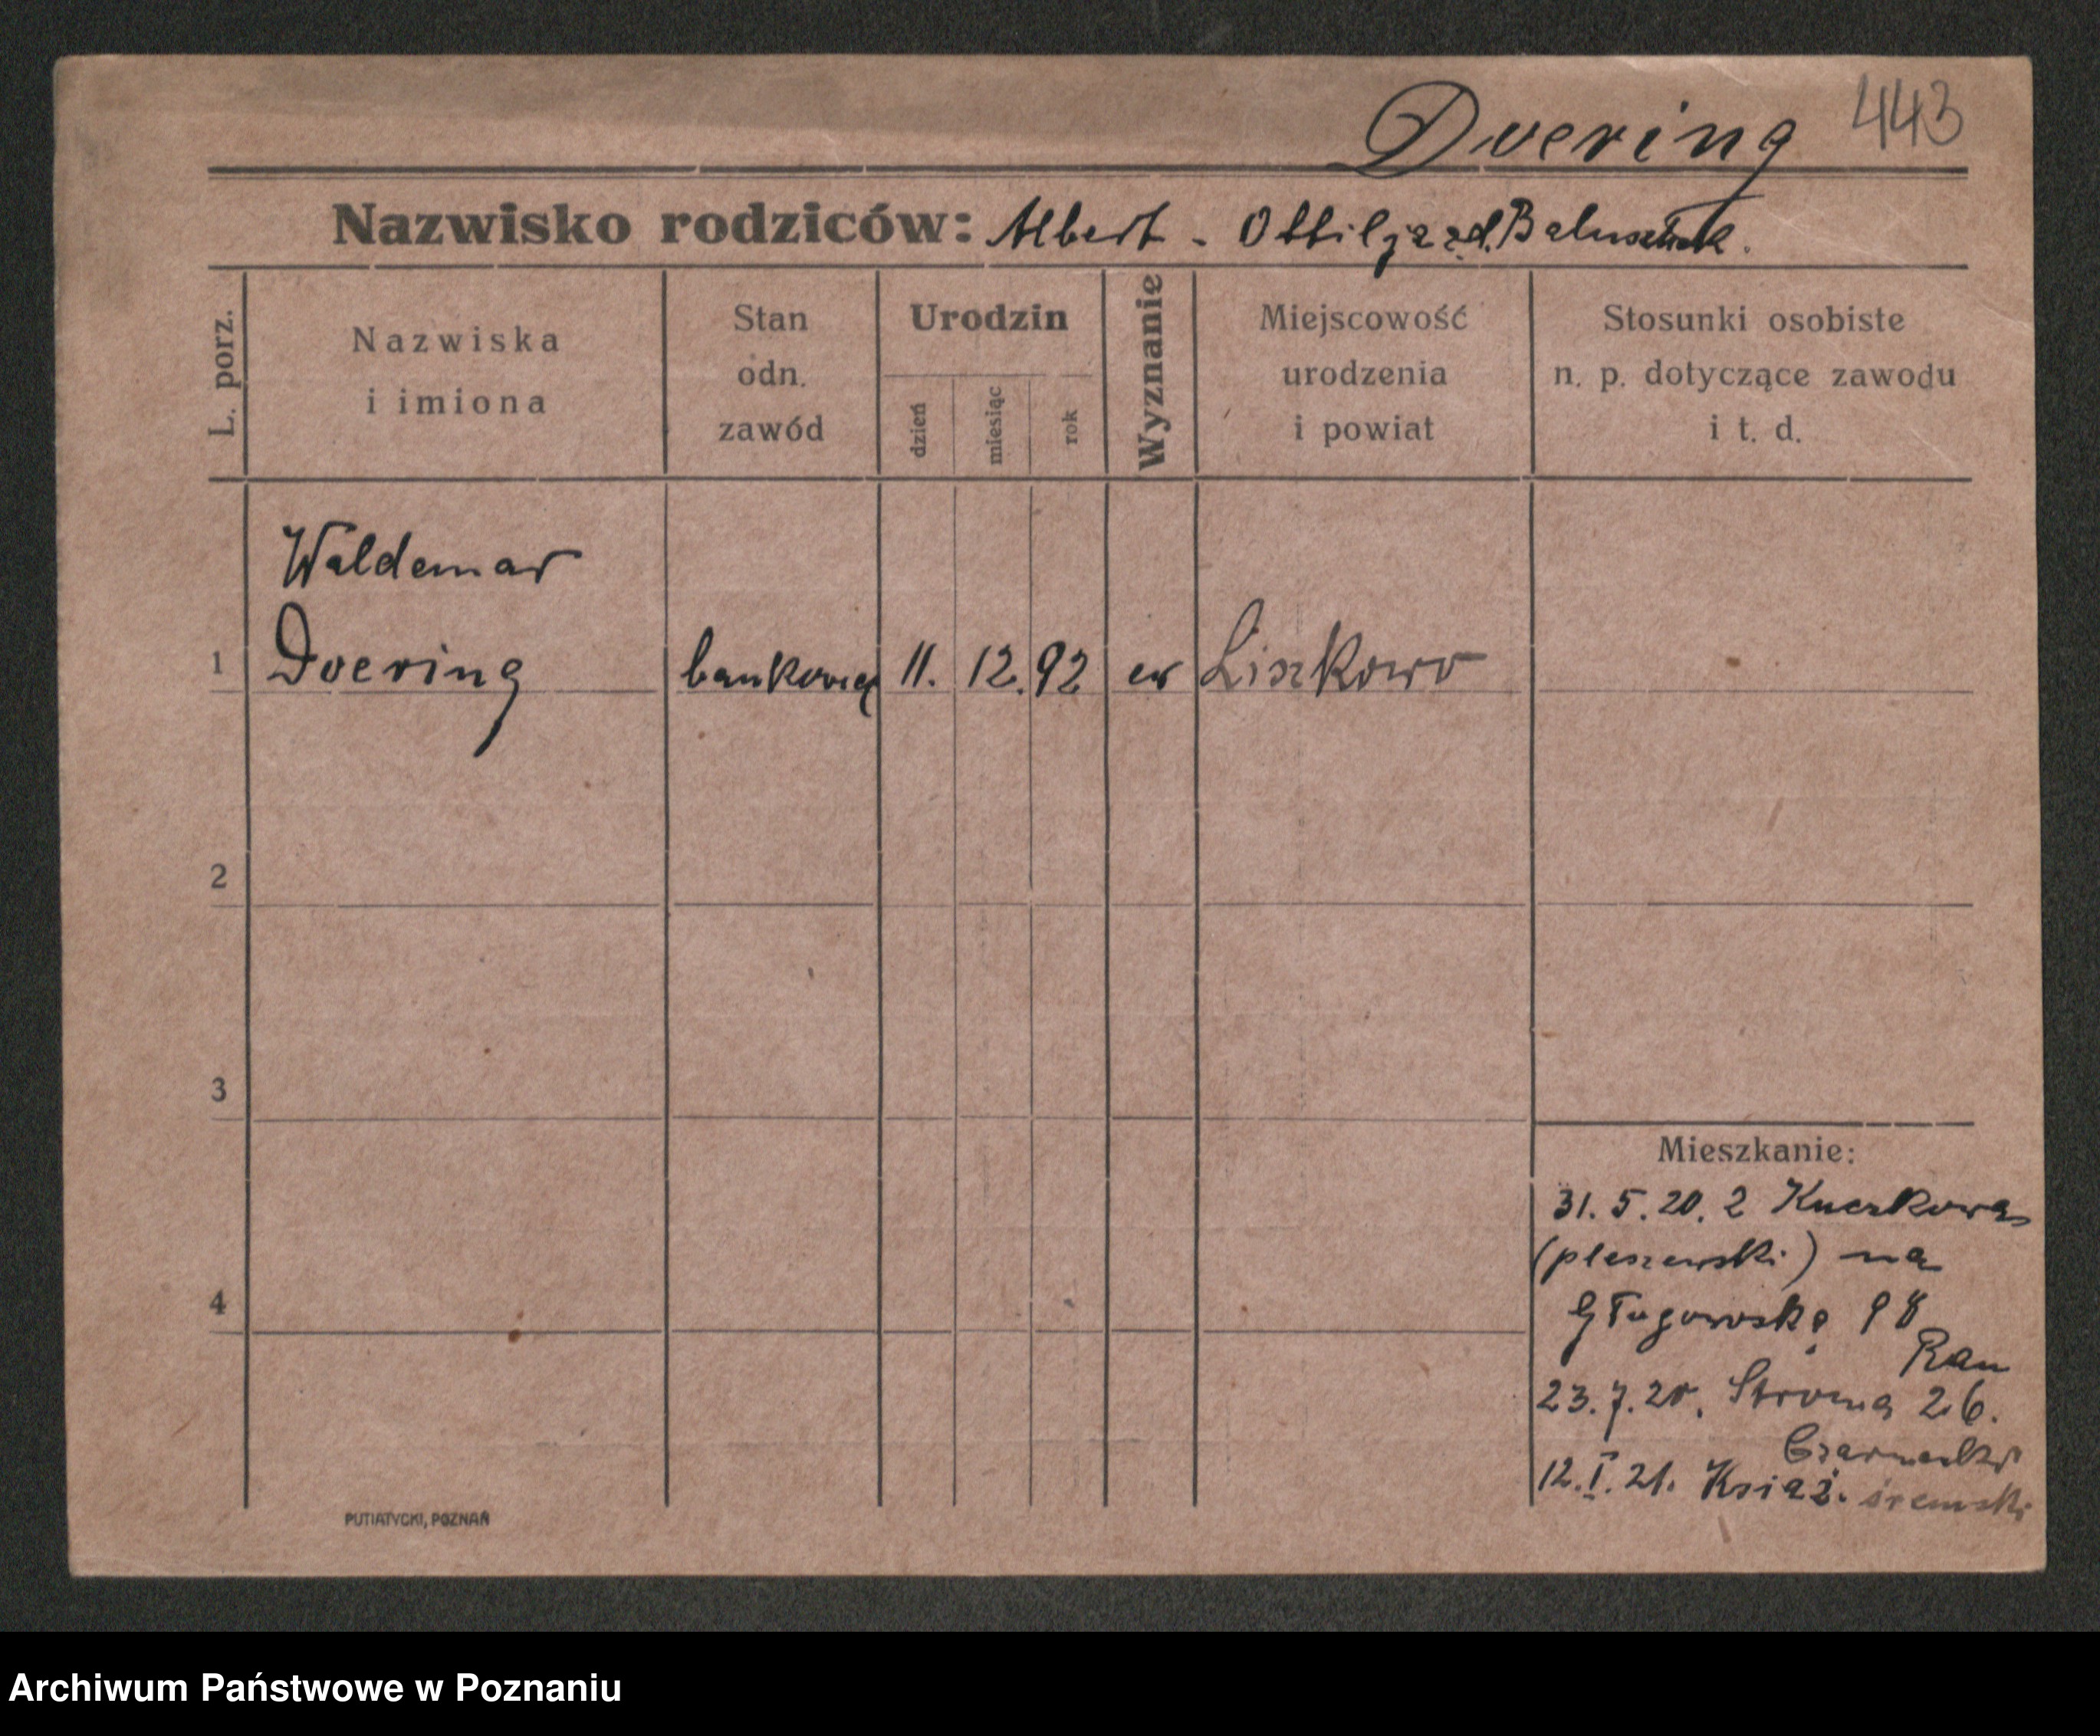 Doering 443
Nazwisko rodziców: Albert - Ottilja zd.
L. porz.
Nazwiska
i imiona
Stan
odn.
zawód
Urodzin
dzień
miesiąc
rok
Wyznanie
Miejscowość
urodzenia
i powiat
Stosunki osobiste
n. p. dotyczące zawodu
i t. d.
Waldemar
1 Doering 11. 12. 92 ew Liszkowo
2
3
4
Mieszkanie:
31. 5. 20. z
(pleszewski) na
Głogowską 98
Rau
23. 7. 20. Stroma 26.
12. I. 21. Książ. śremski
PUTIATYCKI, POZNAŃ
Archiwum Państwowe w Poznaniu